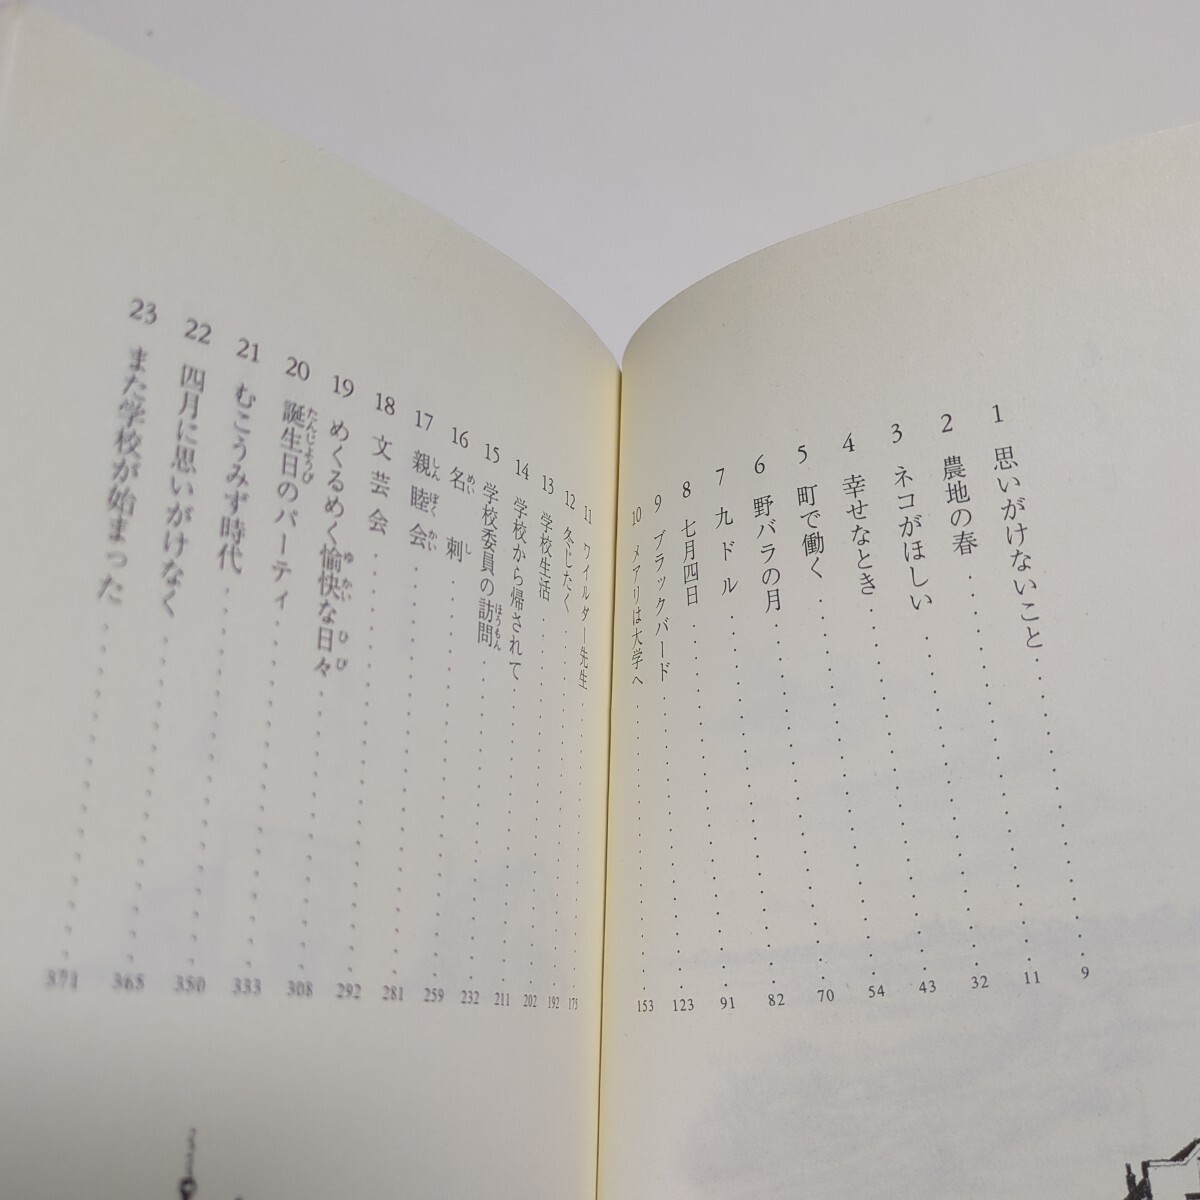 1 思いがけないこと 9
2 農地の春 11
3 ネコがほしい 32
4 幸せなとき 43
5 町で働く 54
6 野バラの月 70
7 九ドル 82
8 七月四日 91
9 ブラックバード 123
10 メアリは大学へ 153
11 ワイルダー先生 175
12 冬じたく 192
13 学校生活 202
14 学校から帰されて 211
ほうもん
15 学校委員の訪問 232
めいし
16 名刺 259
しんぼくかい
17 親睦会 281
18 文芸会 292
ゆかい ひび
19 めくるめく愉快な日々 308
たんじょうび
20 誕生日のパーティ 333
21 むこうみず時代 350
22 四月に思いがけなく 365
23 また学校が始まった 371